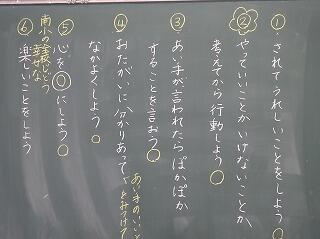 ① されてうれしいことをしよう
② やっていいことか いけないことか、
考えてから行動しよう
③ あい手が言われたらぽかぽか
することを言おう
④ おたがいに分かりあって、
なかよくしよう。
あい手のいいと
とみつけて
⑤ 心を◯にしよう
⑥ 楽しいことをしよう
南小の
幸せな